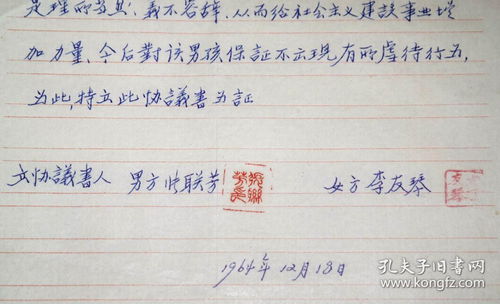 是理所當然、義不容辞、从而给社会主义建設事业增
加力量、今后對该男孩保証不出現有所虐待行为,
为此,特立此协議書为証
立协議書人 男方 联芳 女方 李友琴
1964年12月18日
孔夫子旧书网
www.kongfz.com